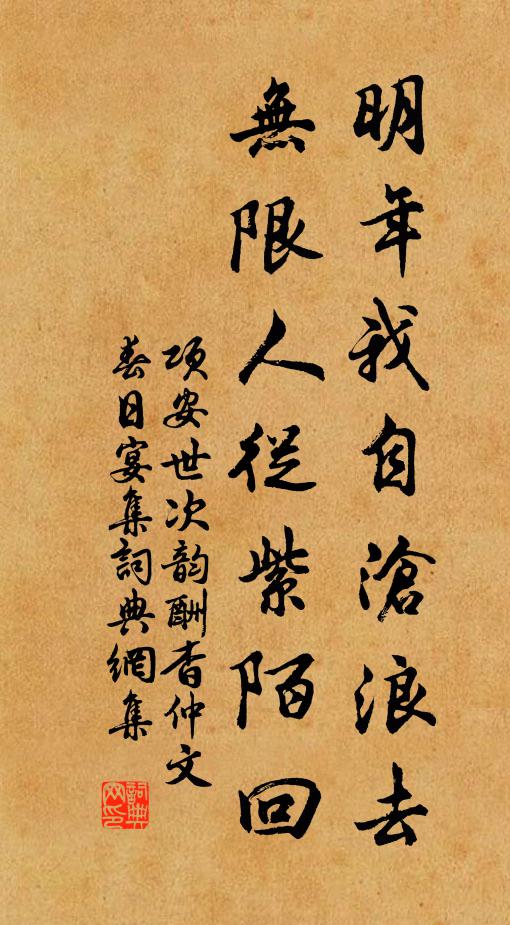 明年我自滄浪去
無限人從紫陌回
項安世次韵酬香仲文
春日宴集詞典網集
詞典网印